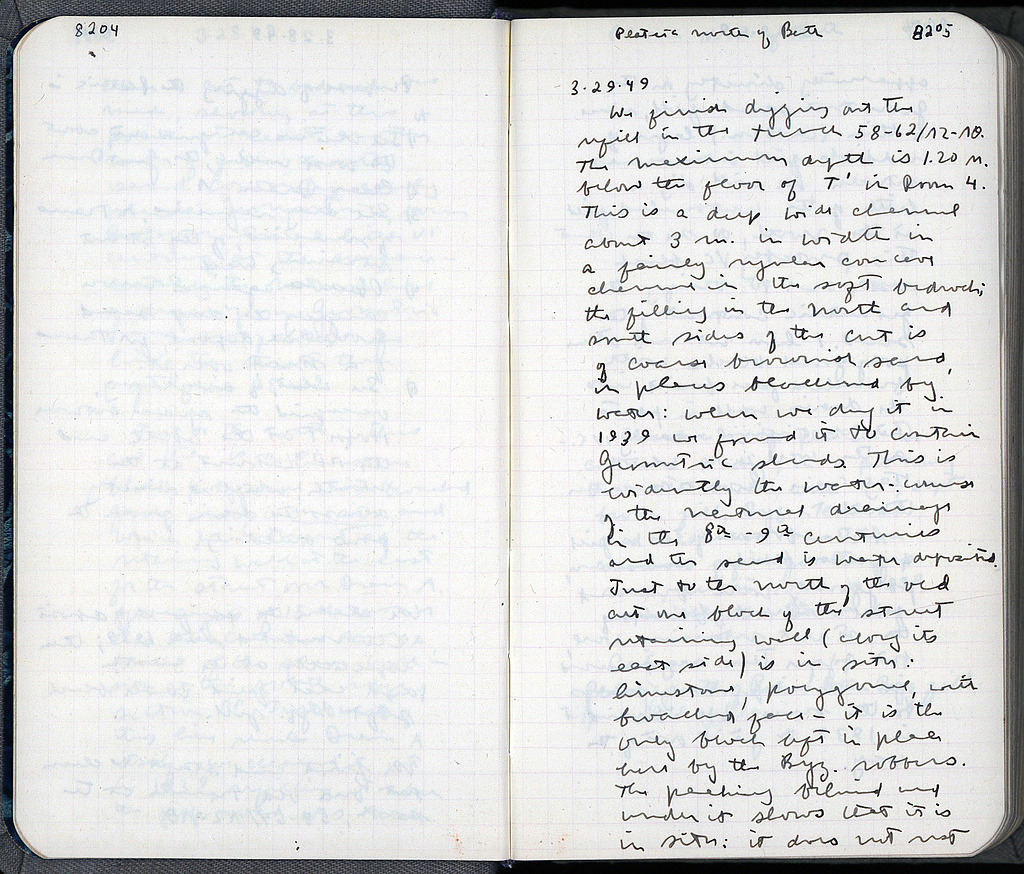 8204
Plateia north of Bath
8205
3.29.49
We finish digging out the
refill in the trench 58-62/12-18.
The maximum depth is 1.20 m.
below the floor of T' in Room 4.
This is a deep wide channel
about 3 m. in width in
a fairly regular concave
channel in the soft bedrock;
the filling in the north and
south sides of the cut is
of coarse brownish sand,
in places blackened by
water: when we dug it in
1939 we found it to contain
Geometric sherds. This is
evidently the water-course
of the natural drainage
in the 8th - 9th centuries
and the sand is water deposited.
Just to the north of the old
cut one block of the street
retaining wall (along its
east side) is in situ:
limestone, polygonal, with
broached face - it is the
only block left in place
here by the Byz. robbers.
The packing behind and
under it shows that it is
in situ: it does not rest